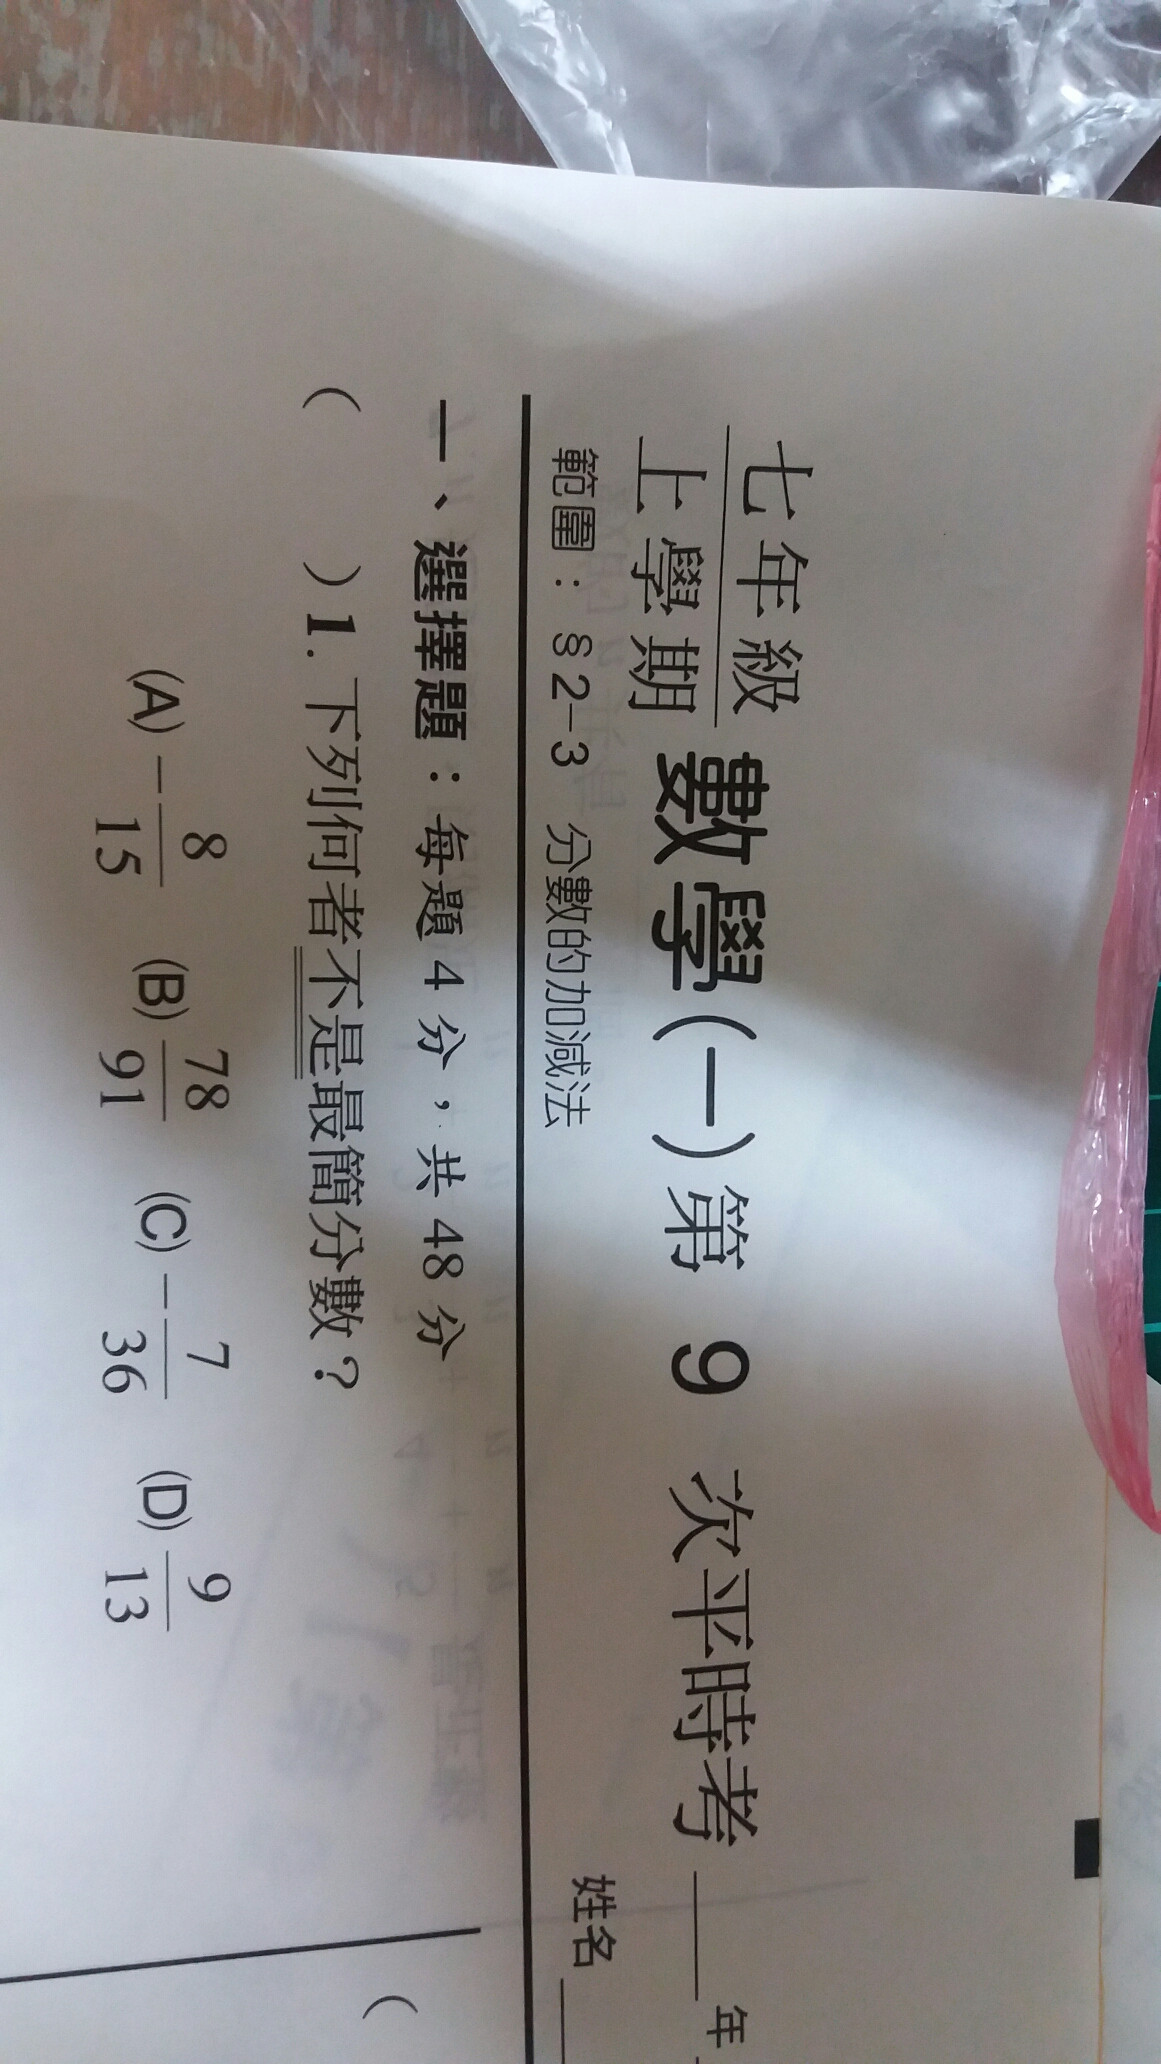 七年級
上學期
數學(一)第 9 次平時考
年
範圍：§2-3 分數的加減法
姓名
一、選擇題：每題 4 分，共 48 分
( )1. 下列何者不是最簡分數？
(A) -8/15 (B) 78/91 (C) -7/36 (D) 9/13
(